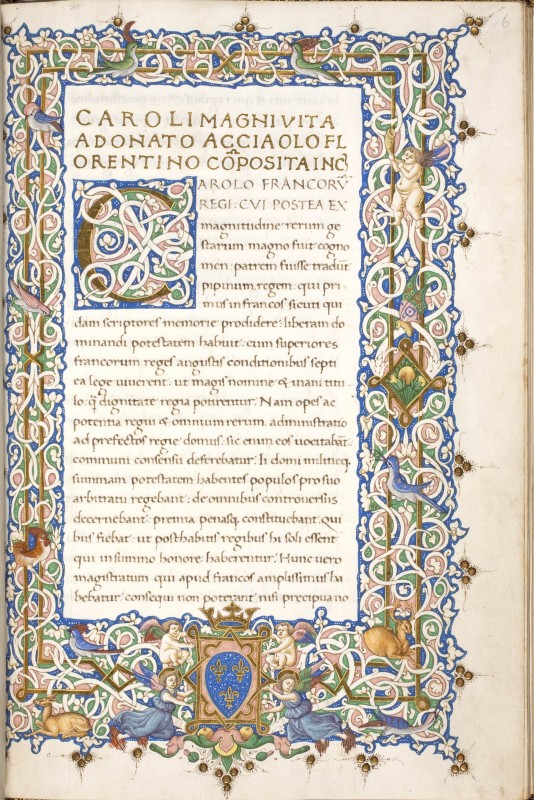 6
CAROLI MAGNI VITA
A DONATO ACCIAOLO FL
ORENTINO CŌPOSITA INC̄
CAROLO FRANCORV̄
REGI: CVI POSTEA EX
magnitudine rerum ge
starum magno fuit cogno
men: patrem fuisse tradūt
pipinum regem: qui pri
mus in francos sicuti qui
dam scriptores memorie prodidere: liberam do
minandi potestatem habuit: cum superiores
francorum reges angustis conditionibus septi
ea lege viverent: ut magis nomine & inani titu
lo: q̄ dignitate regia potirentur. Nam opes ac
potentia regni & omnium rerum administratio
ad prefectos regie domus: sic enim eos vocitabāt:
communi consensu deferebatur. Ii domi militieq;
summam potestatem habentes populos pro suo
arbitratu regebant: de omnibus controversiis
decernebant: premia penasq; constituebant. Qui
bus fiebat: ut posthabitis regibus hi soli essent
qui in summo honore haberentur. Hunc vero
magistratum qui apud francos amplissimus ha
bebatur: consequi non poterant: nisi precipua no